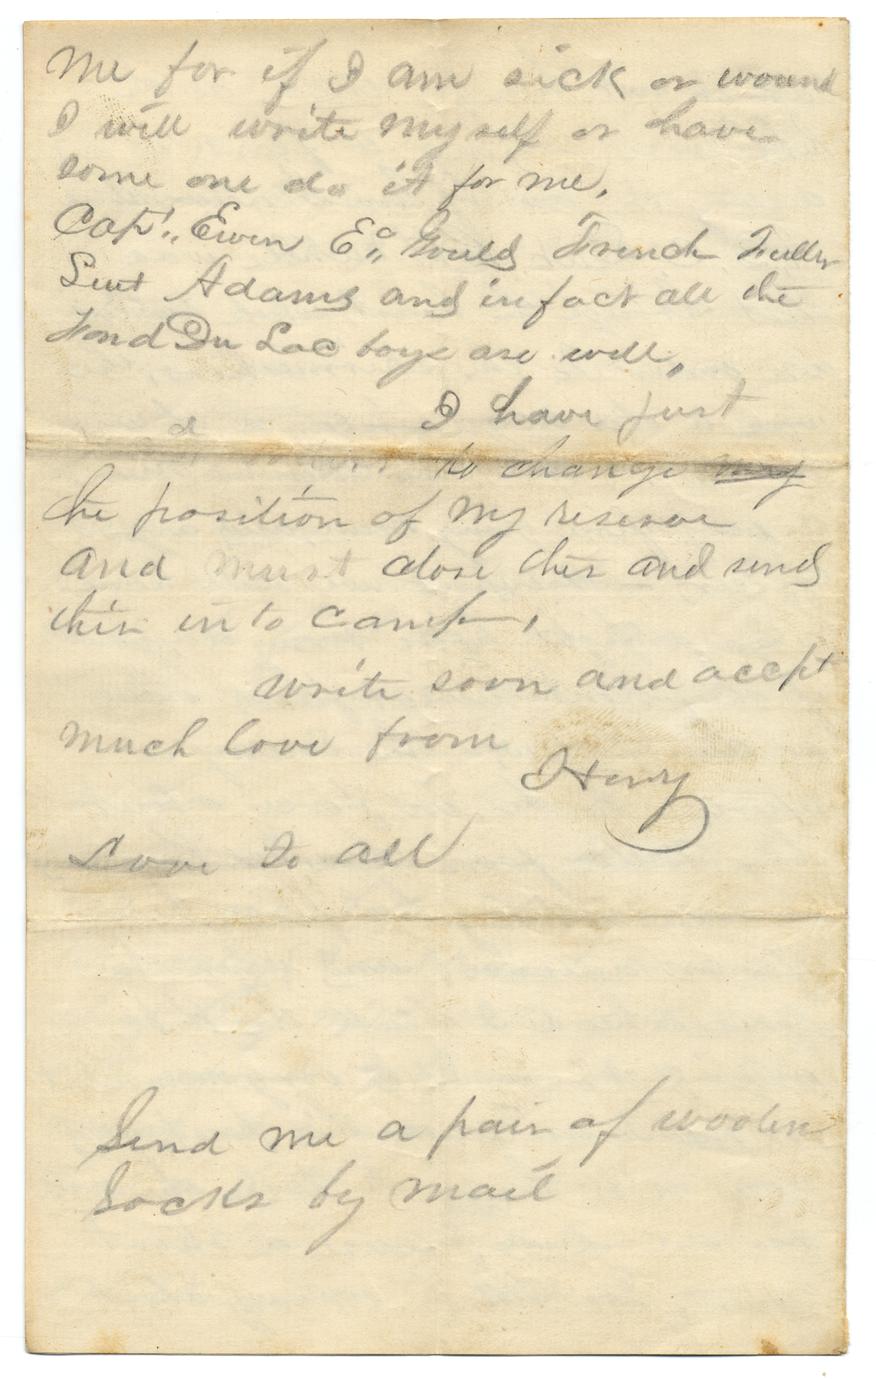 Me for if I am sick or wound
I will write myself or have
some one do it for me.
Capt., Ewen Ed., Gould French Fuller
Leut Adams and in fact all the
Fond Du Lac boys are well,
I have just
orders to change my
the position of my reserve
and must close this and send
this into Camp,
write soon and accept
much love from
Henry
Love to all
Send me a pair of woolen
Socks by mail